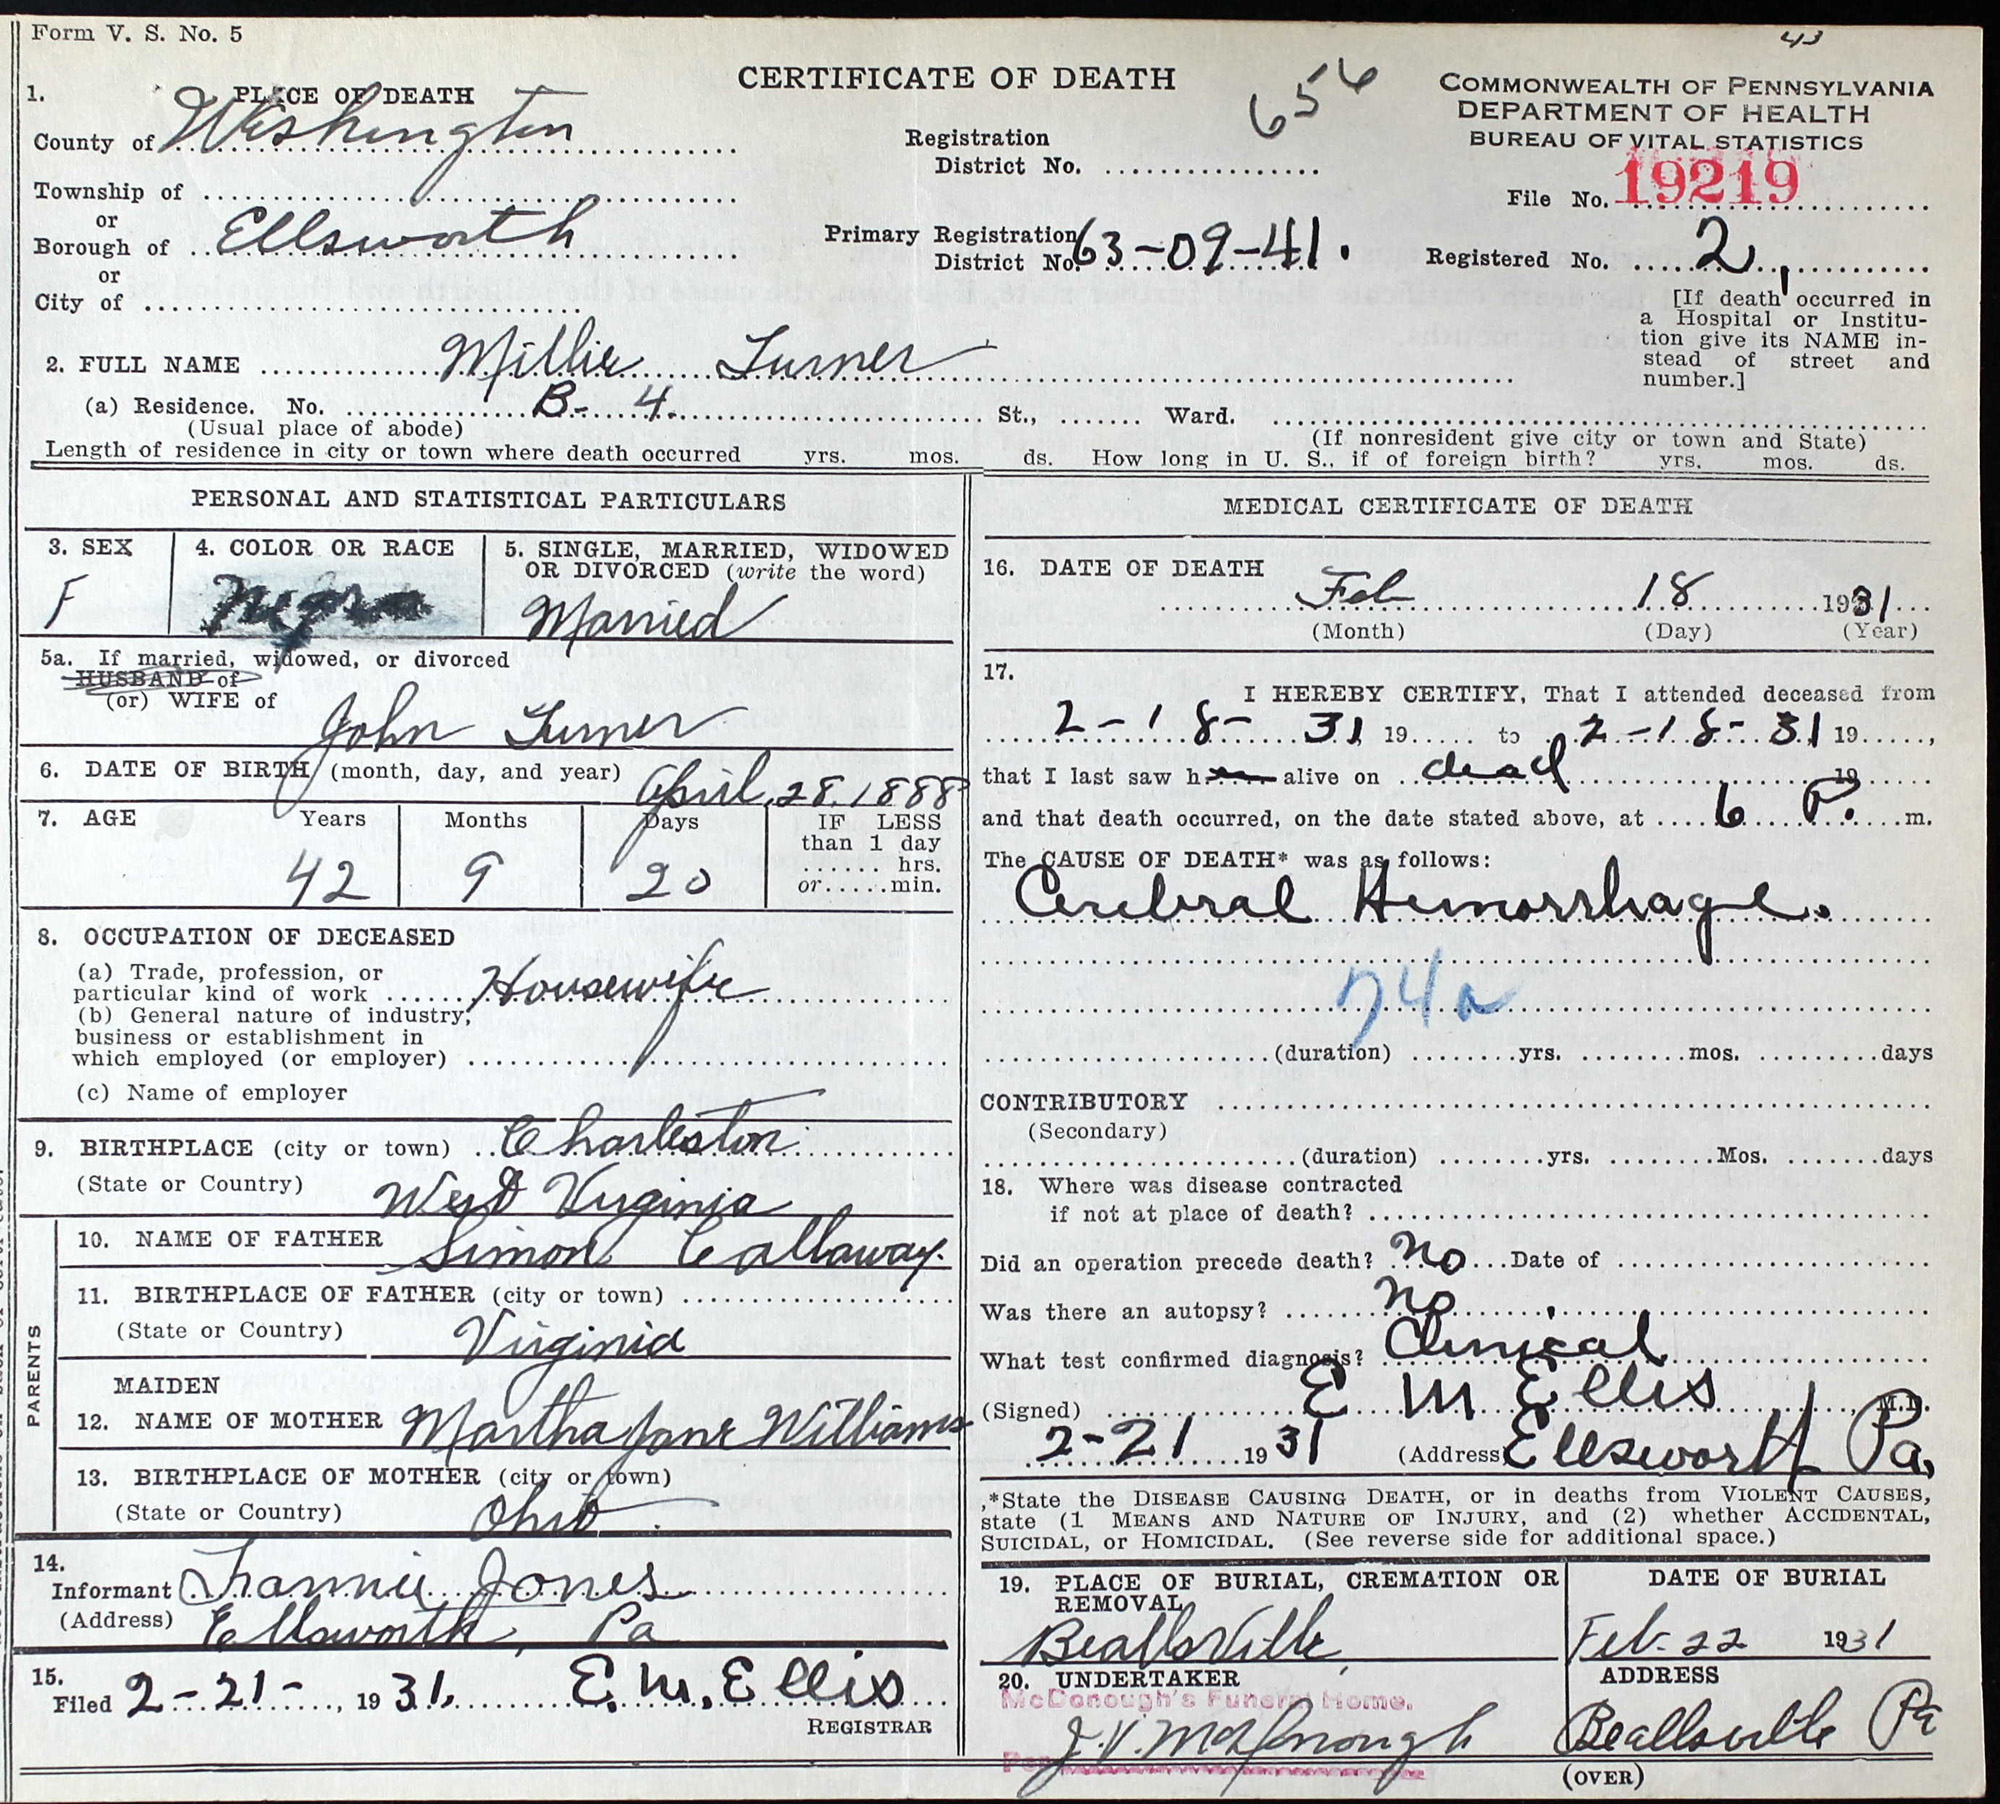 Form V. S. No. 5
43
CERTIFICATE OF DEATH
656
COMMONWEALTH OF PENNSYLVANIA
DEPARTMENT OF HEALTH
BUREAU OF VITAL STATISTICS
1. PLACE OF DEATH
County of Washington
Registration
District No.
File No. 19219
Township of
or
Borough of Ellsworth
or
City of
Primary Registration
District No. 63-09-41.
Registered No. 2,
[If death occurred in
a Hospital or Institu-
tion give its NAME in-
stead of street and
number.]
2. FULL NAME Millie Turner
(a) Residence. No. B- 4. St., Ward.
(Usual place of abode)
(If nonresident give city or town and State)
Length of residence in city or town where death occurred yrs. mos. ds. How long in U. S., if of foreign birth? yrs. mos. ds.
PERSONAL AND STATISTICAL PARTICULARS
3. SEX
F
4. COLOR OR RACE
Negro
5. SINGLE, MARRIED, WIDOWED
OR DIVORCED (write the word)
Married
5a. If married, widowed, or divorced
HUSBAND of
(or) WIFE of
John Turner
6. DATE OF BIRTH (month, day, and year) April, 28, 1888
7. AGE Years Months Days
42 9 20
IF LESS
than 1 day
...... hrs.
or.....min.
8. OCCUPATION OF DECEASED
(a) Trade, profession, or
particular kind of work Housewife
(b) General nature of industry,
business or establishment in
which employed (or employer)
(c) Name of employer
9. BIRTHPLACE (city or town) Charleston
(State or Country) West Virginia
PARENTS
10. NAME OF FATHER Simon Callaway.
11. BIRTHPLACE OF FATHER (city or town)
(State or Country) Virginia
MAIDEN
12. NAME OF MOTHER Martha Jane Williams
13. BIRTHPLACE OF MOTHER (city or town)
(State or Country) Ohio
14.
Informant Frannie Jones
(Address) Ellsworth, Pa
15.
Filed 2-21-, 1931, E. M. Ellis
REGISTRAR
MEDICAL CERTIFICATE OF DEATH
16. DATE OF DEATH
Feb 18 1931
(Month) (Day) (Year)
17.
I HEREBY CERTIFY, That I attended deceased from
2-18-31, 19..... to 2-18-31 19.....,
that I last saw h alive on dead 19
and that death occurred, on the date stated above, at 6 P. m.
The CAUSE OF DEATH* was as follows:
Cerebral Hemorrhage.
74a
(duration) yrs. mos. days
CONTRIBUTORY
(Secondary)
(duration) yrs. Mos. days
18. Where was disease contracted
if not at place of death?
Did an operation precede death? No Date of
Was there an autopsy? No
What test confirmed diagnosis? Clinical
(Signed) E M Ellis, M.D.
2-21 1931 (Address) Ellsworth Pa,
*State the DISEASE CAUSING DEATH, or in deaths from VIOLENT CAUSES,
state (1 MEANS AND NATURE OF INJURY, and (2) whether ACCIDENTAL,
SUICIDAL, or HOMICIDAL. (See reverse side for additional space.)
19. PLACE OF BURIAL, CREMATION OR
REMOVAL
Beallsville,
DATE OF BURIAL
Feb. 22 1931
20. UNDERTAKER
McDonough's Funeral Home.
J. V. McDonough
ADDRESS
Beallsville Pa
(OVER)